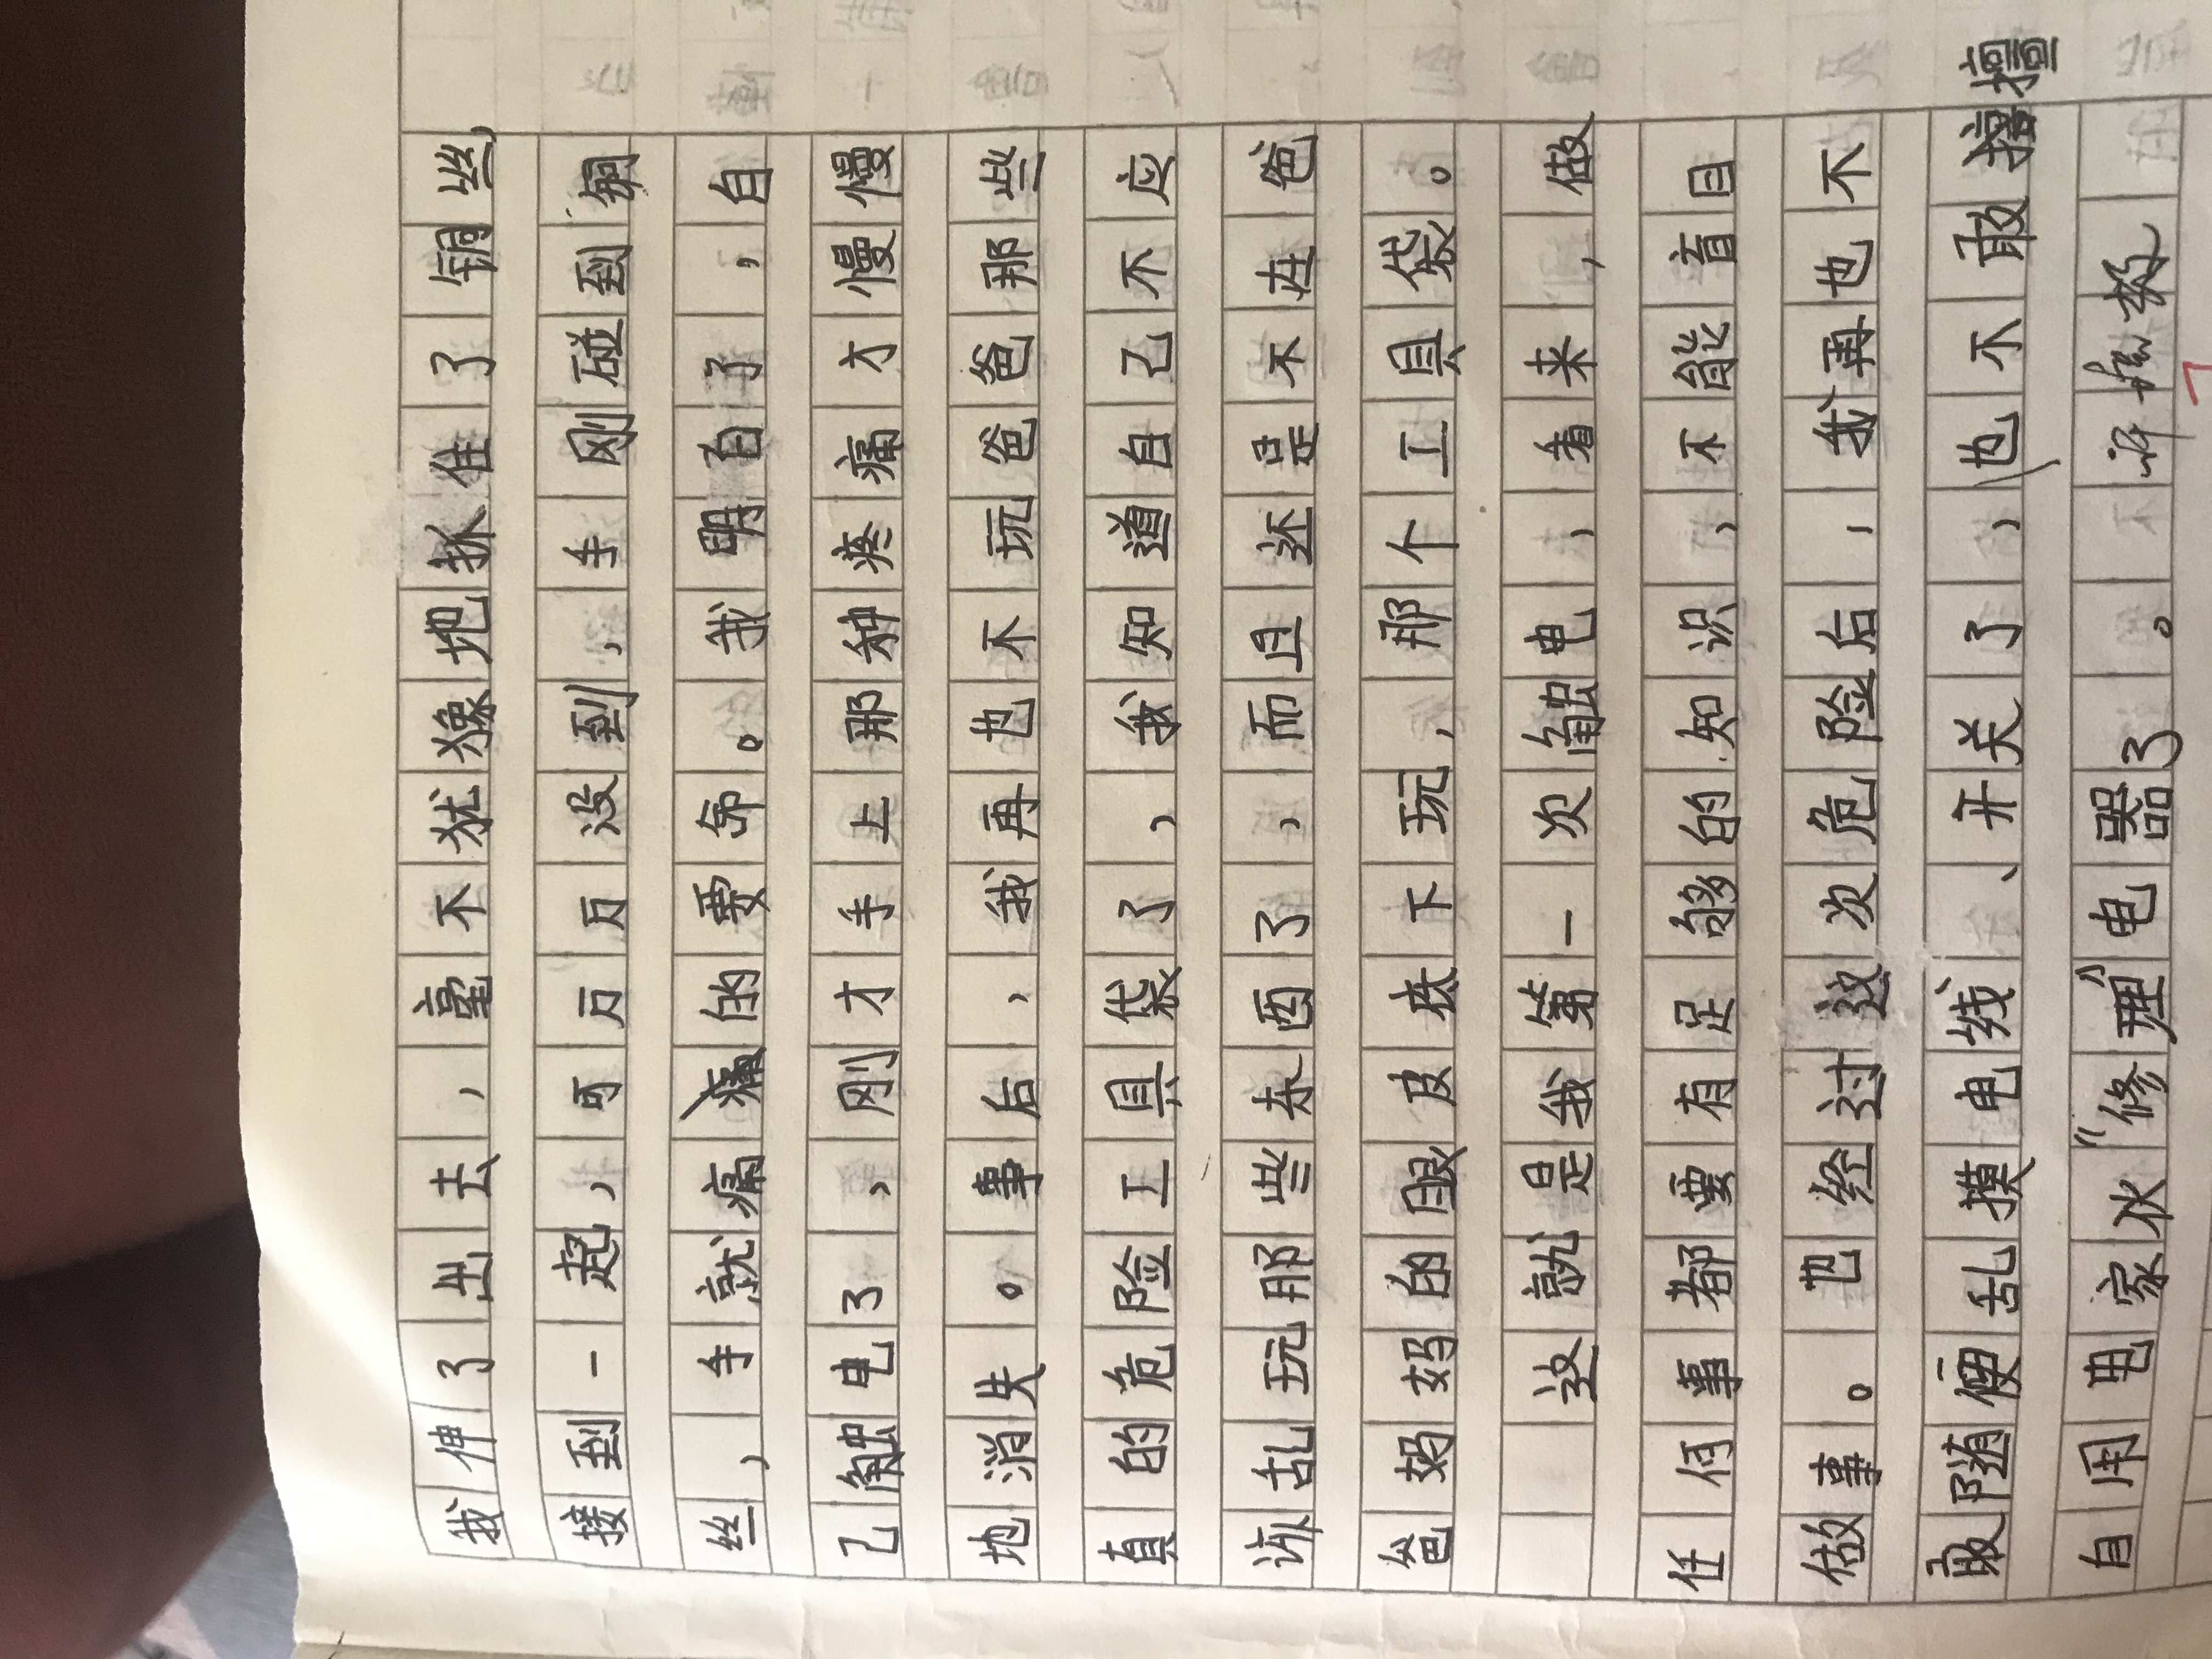 我伸了出去，毫不犹豫地抓住了铜丝，
接到一起，可万万没到，手刚碰到铜
丝，手就痛的要命。我明白了，自
己触电了，刚才手上那种疼痛才慢慢
地消失。事后，我再也不玩爸爸那些
真的危险工具袋了，我知道自己不应
该乱玩那些东西了，而且还是不在爸
爸妈妈的眼皮底下玩，那个工具袋。
这就是我第一次触电，看来，做
任何事都要有足够的知识，不能盲目
做事。也经过这次危险后，我再也不
敢随便乱摸电线、开关了，也不敢擅
自用电家伙“修理”电器了。